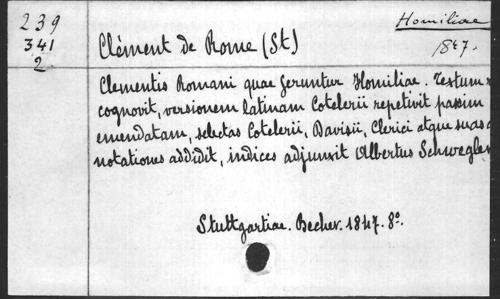 239
341
2
Homiliae
1847.
Clément de Rome (St)
Clementis Romani quae feruntur Homiliae. Textum
cognovit, versionem latinam Cotelerii repetivit passim
emendatam, selectas Cotelerii, Davisii, Clerici atque suas
notationes addidit, indices adjunxit Albertus Schwegler
Stuttgartiae. Becher. 1847. 8º.